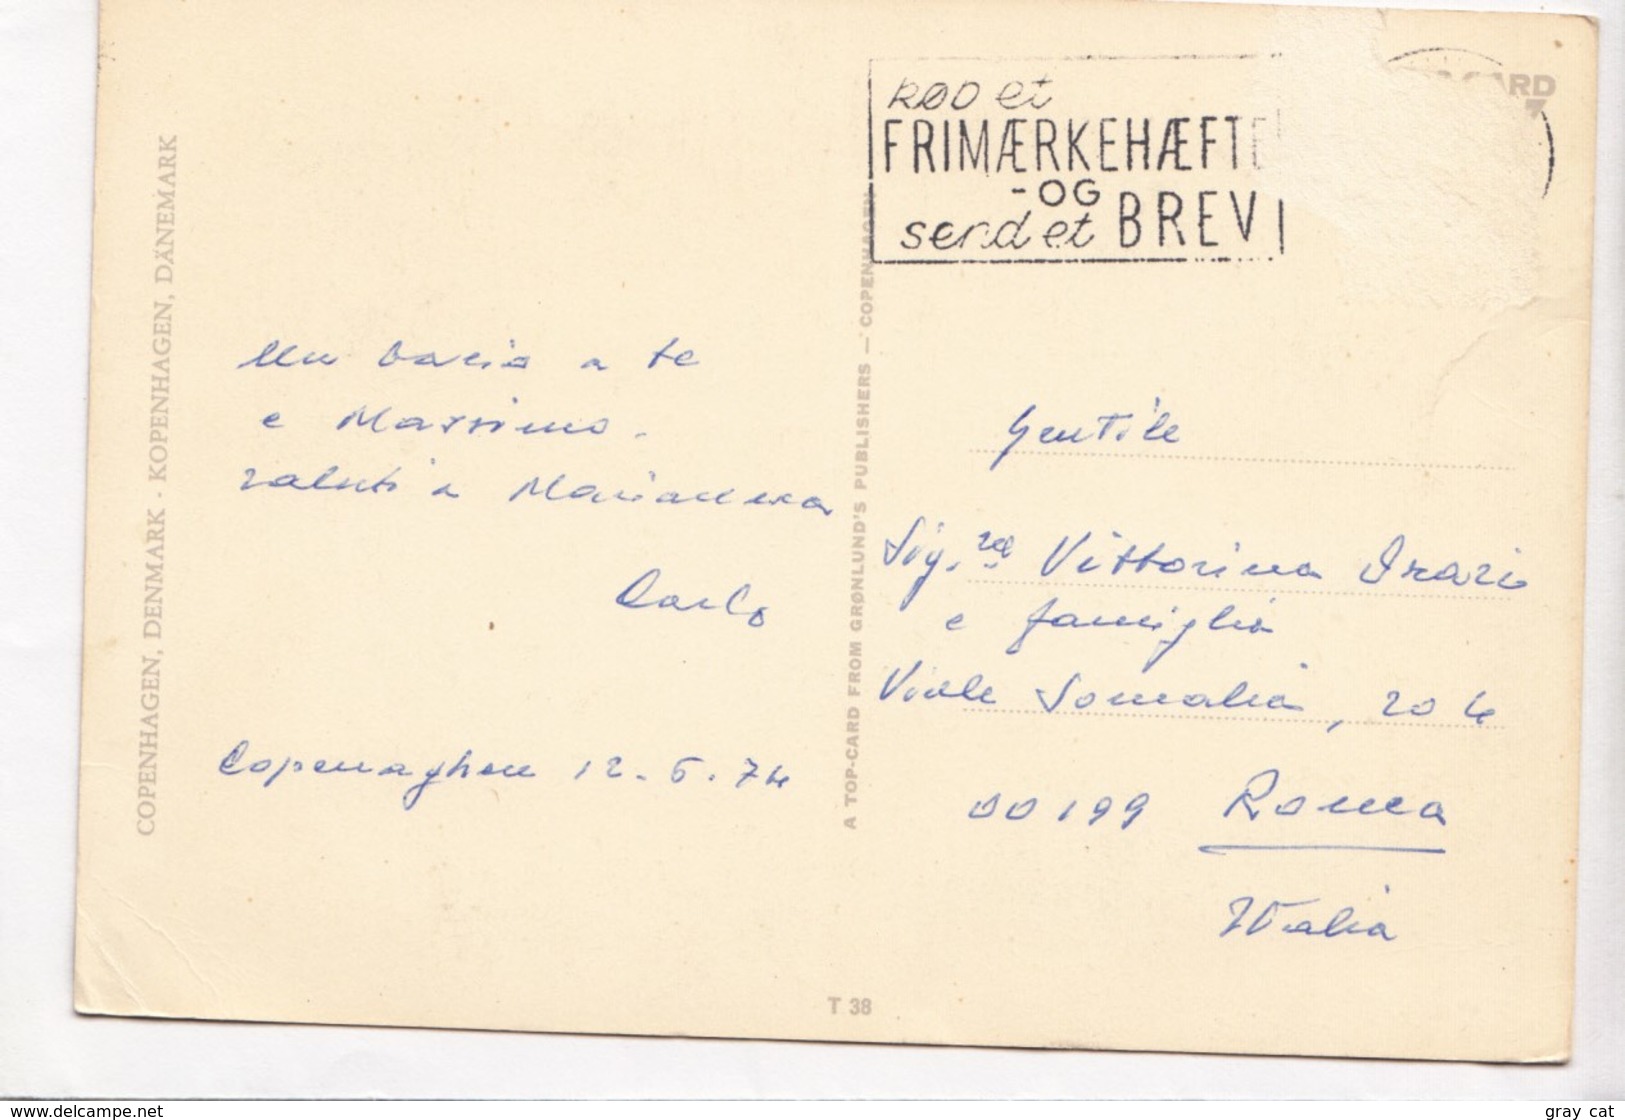 COPENHAGEN, DENMARK - KOPENHAGEN, DÄNEMARK
Un bacio a te
e Massimo.
saluti a Marianna
Carlo
Copenaghen 12.5.74
T 38
A TOP-CARD FROM GRØNLUND'S PUBLISHERS — COPENHAGEN
KØB et
FRIMÆRKEHÆFTE
-OG
send et BREV
CARD
Gentile
Sig.ra Vittorina
e famiglia
Viale Somalia, 204
00199 Roma
Italia
www.delcampe.net
gray cat